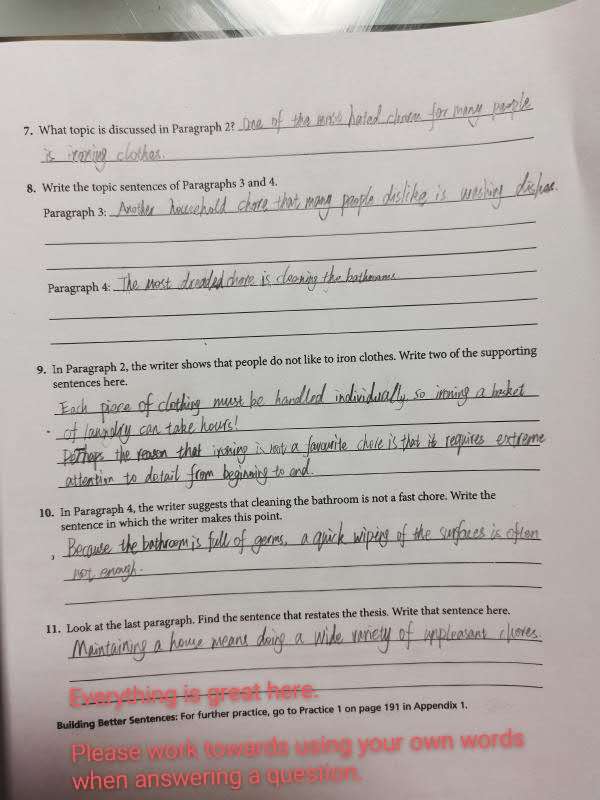 7. What topic is discussed in Paragraph 2? One of the most hated chores for many people
is ironing clothes.
8. Write the topic sentences of Paragraphs 3 and 4.
Paragraph 3: Another household chore that many people dislike is washing dishes.
Paragraph 4: The most dreaded chore is cleaning the bathrooms
9. In Paragraph 2, the writer shows that people do not like to iron clothes. Write two of the supporting
sentences here.
Each piece of clothing must be handled individually, so ironing a basket
of laundry can take hours!
Perhaps the reason that ironing is not a favourite chore is that it requires extreme
attention to detail from beginning to end.
10. In Paragraph 4, the writer suggests that cleaning the bathroom is not a fast chore. Write the
sentence in which the writer makes this point.
Because the bathroom is full of germs, a quick wiping of the surfaces is often
not enough.
11. Look at the last paragraph. Find the sentence that restates the thesis. Write that sentence here.
Maintaining a house means doing a wide variety of unpleasant chores.
Everything is great here.
Building Better Sentences: For further practice, go to Practice 1 on page 191 in Appendix 1.
Please work towards using your own words
when answering a question.